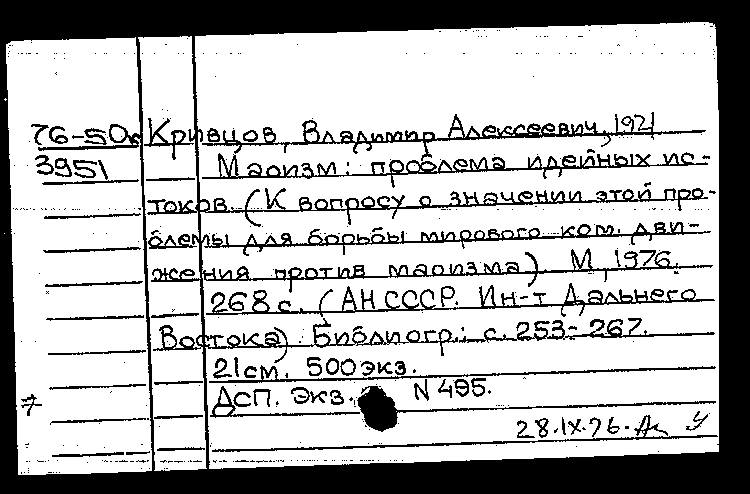 76-50к Кривцов, Владимир Алексеевич, 1921
3951 Маоизм: проблема идейных ис-
токов. (К вопросу о значении этой про-
блемы для борьбы мирового ком. дви-
жения против маоизма) М, 1976.
268 с. (АН СССР. Ин-т Дальнего
Востока) Библиогр.: с. 253-267.
21 см. 500 экз.
ДсП. Экз. N 495.
28.IX.76.